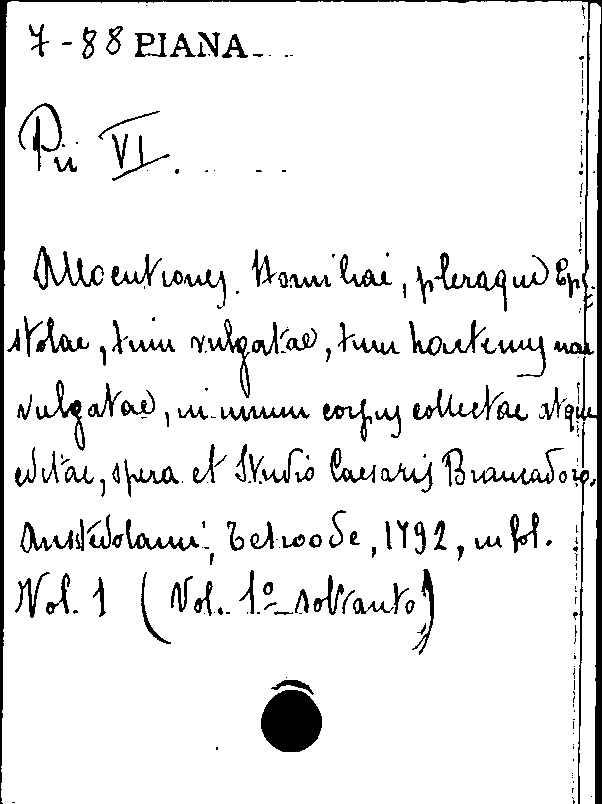 7-88 PIANA
Pii VI.
Allocutiones. Homiliae, pleraque Epi-
stolae, tum vulgatae, tum hactenus non
vulgatae, in unum corpus collectae atque
editae, opera et Studio Caesaris Brancadoro.
Amstedolami, Tetroode, 1792, in fol.
Vol. 1 (Vol. 1º soltanto)